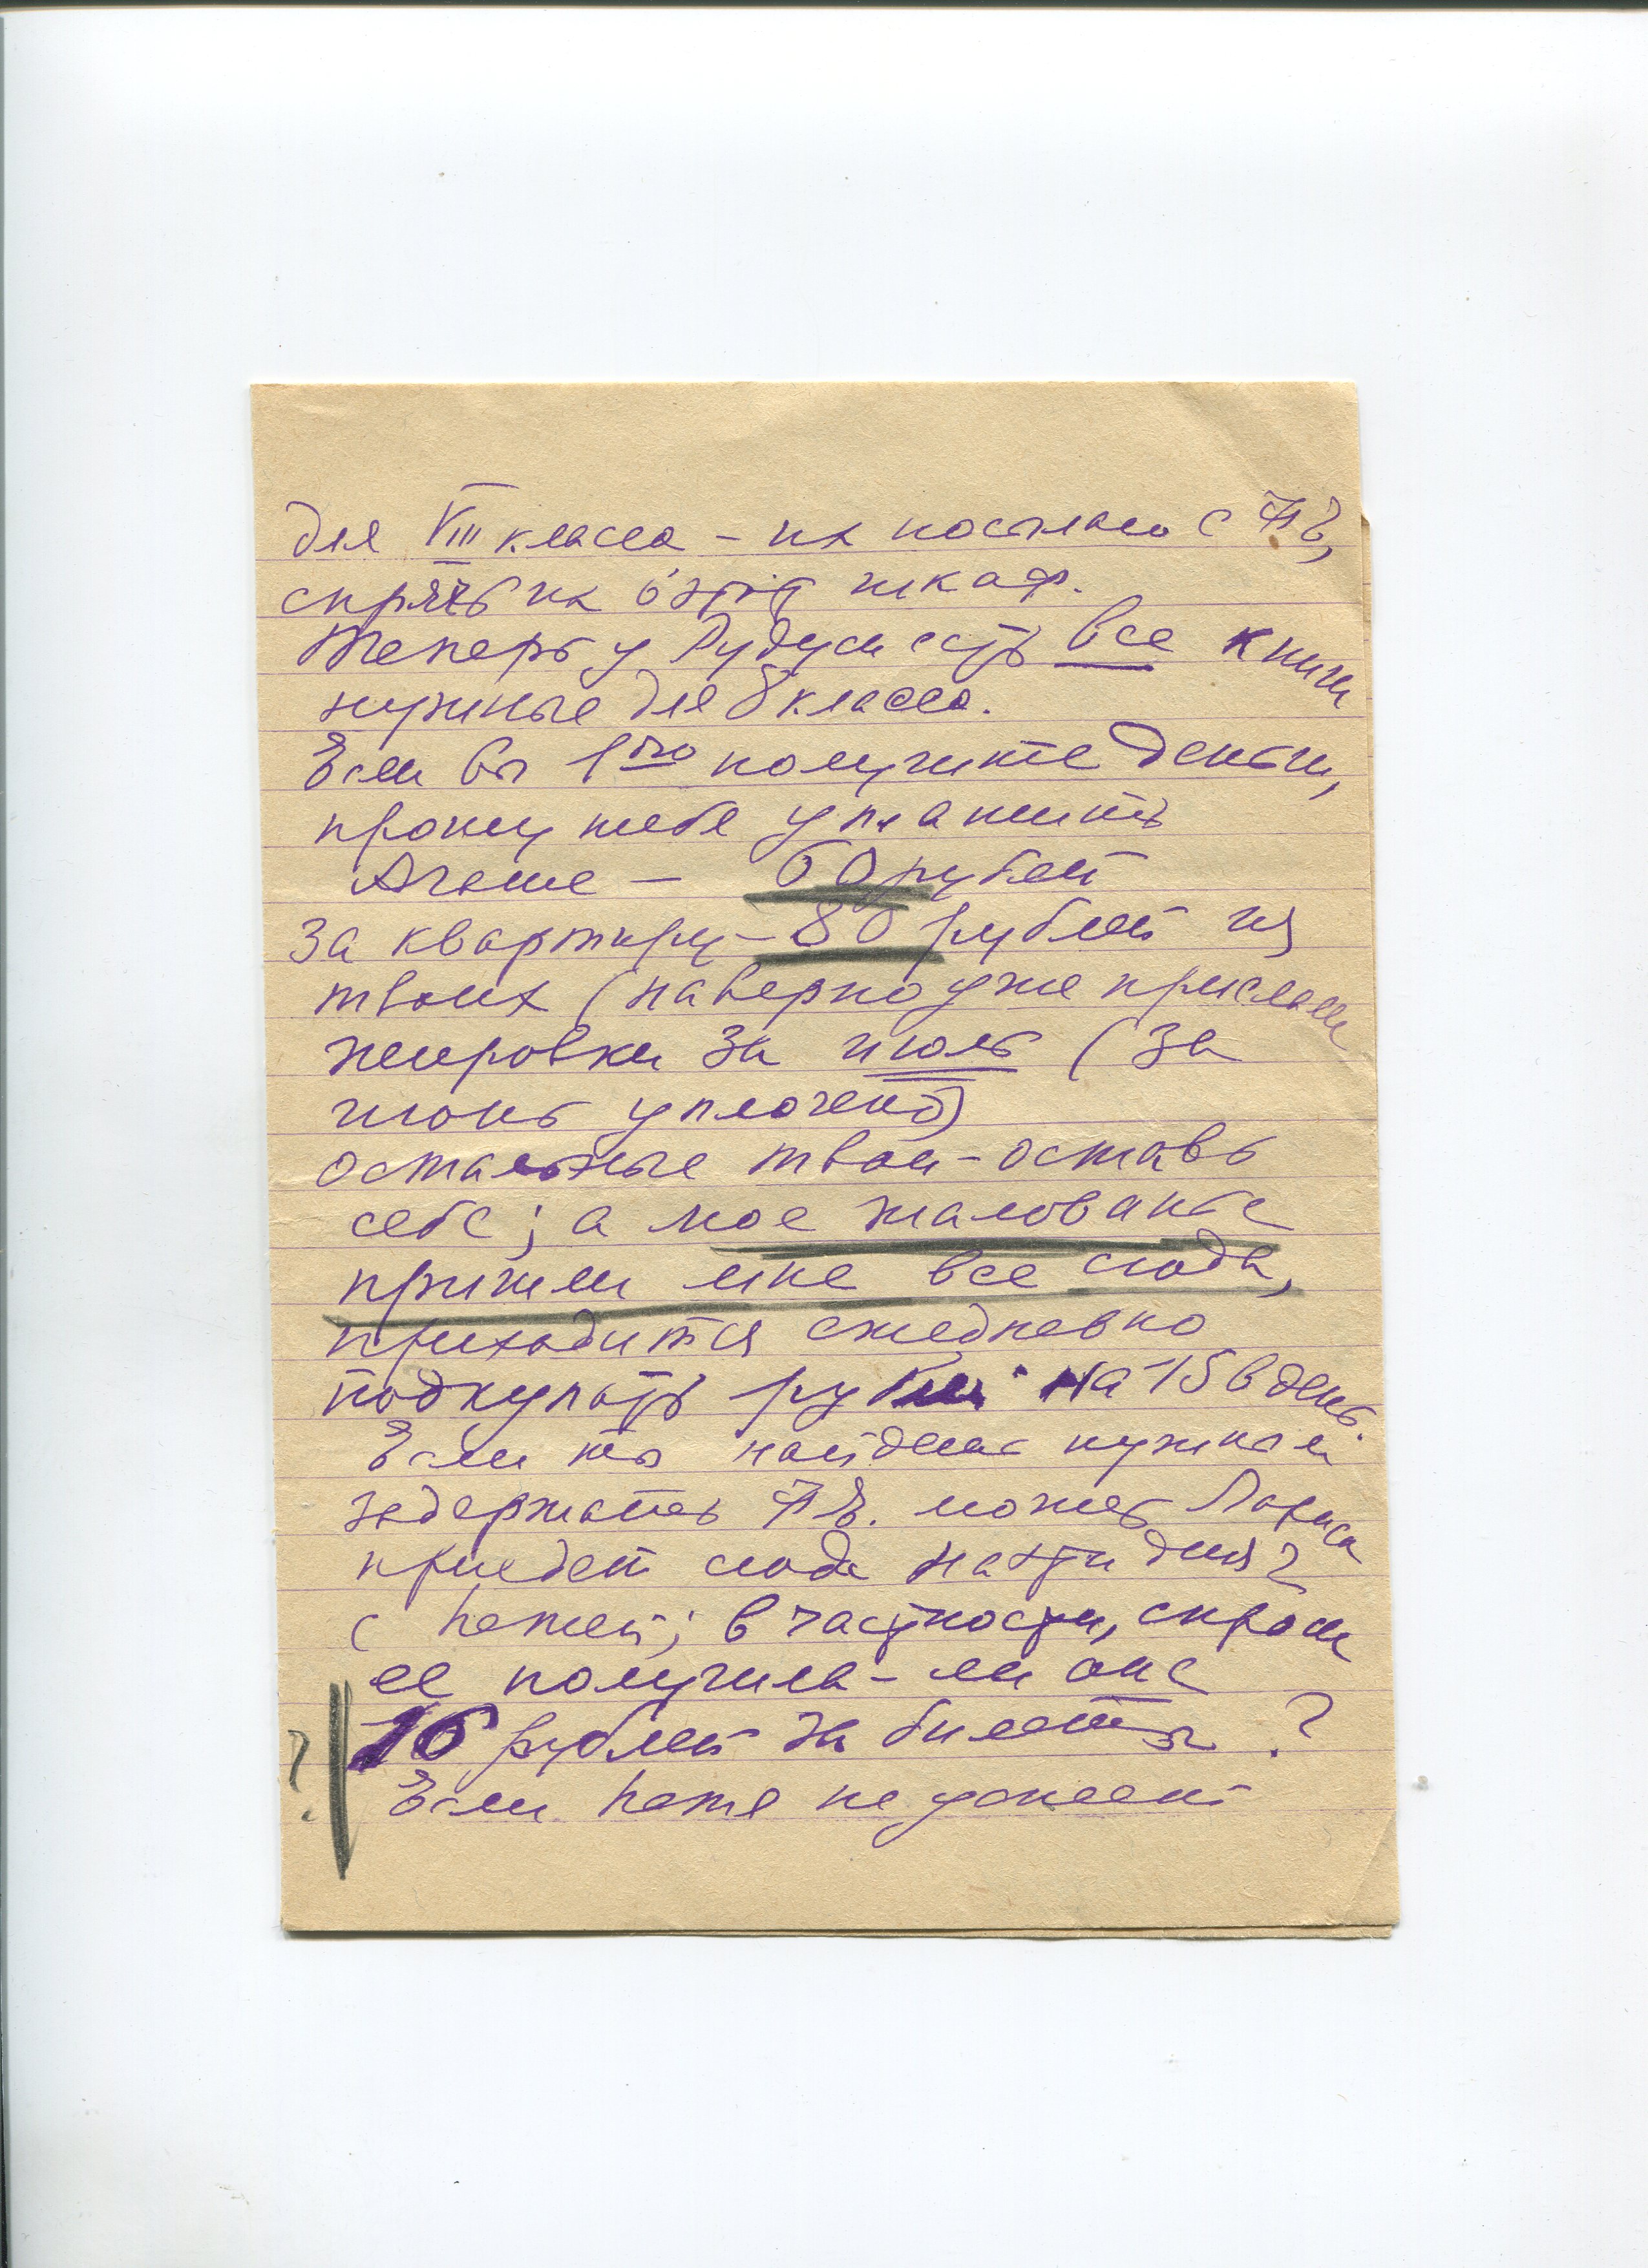 для VIII класса – их посылаю с А.Е.,
спрячь их в этот шкаф.
Теперь у Рудуси есть все книги
нужные для 8 класса.
Если вы 1го получите деньги,
прошу тебя уплатить
– 60 рублей
за квартиру – 80 рублей из
твоих (наверно уже прислали
жировки за июль (за
июнь уплочено)
остальные твои – оставь
себе; а мое жалованье
пришли мне все сюда,
приходится ежедневно
подкупать рублей на 15 в день.
Если ты найдешь нужным
задержать А.Е. может Лариса
приедет сюда на три дня?
с Петей; в частности, спроси
ее получила-ли она
16 рублей за билеты ?
?
Если Петя не успеет